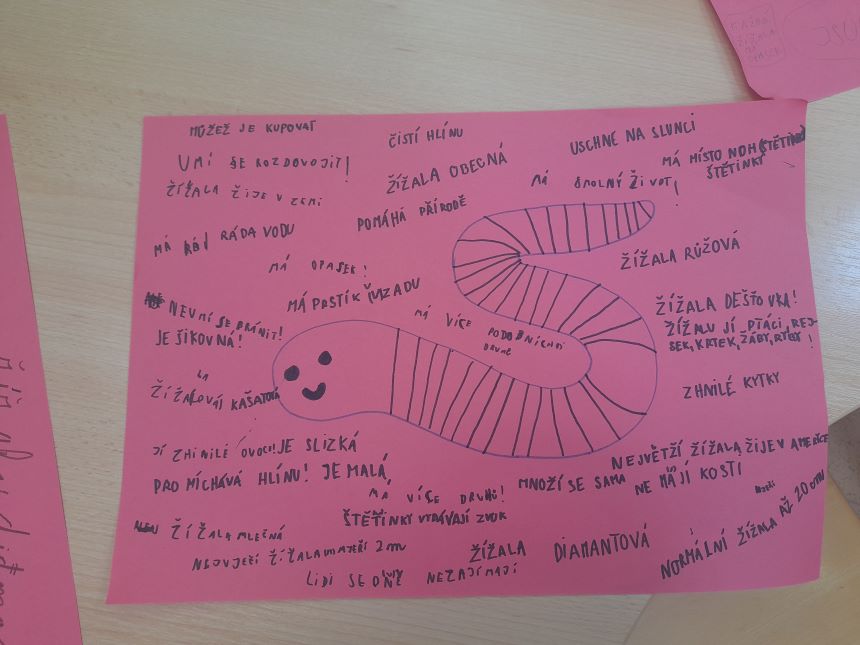 MŮŽEŽ JE KUPOVAT
ČISTÍ HLÍNU
USCHNE NA SLUNCI
UMÍ SE ROZDOVOJIT!
ŽÍŽALA OBECNÁ
MÁ MÍSTO NOH
ŠTĚTINKI
ŽÍŽALA ŽIJE V ZEMI
MÁ SMOLNÝ ŽIVOT!
POMÁHÁ PŘÍRODĚ
MÁ RÁDA VODU
ŽÍŽALA RŮŽOVÁ
MÁ OPASEK!
MÁ PRSTÍK VZADU
NEUMÍ SE BRÁNIT!
JE ŠIKOVNÁ!
MÁ VÍCE PODOBNÍCH
DRUHŮ
ŽÍŽALA DEŠŤOVKA!
ŽÍŽALU JÍ PTÁCI, REJ-
SEK, KRTEK, ŽÁBY, RYBY!
ZHNILÉ KYTKY
JÍ ZHNILÉ OVOCE!
JE SLIZKÁ
PROMÍCHÁVÁ HLÍNU! JE MALÁ,
NEJVĚTŽÍ ŽÍŽALA ŽIJE V AMERICE
MÁ VÍCE DRUHŮ!
MNOŽÍ SE SAMA
NEMAJÍ KOSTI
ŠTĚTINKY VYDÁVAJÍ ZVUK
ŽÍŽALA MLEČNÁ
ŽÍŽALA DIAMANTOVÁ
NORMÁLNÍ ŽÍŽALA AŽ 20 cm
2m
LIDI SE O NĚ NEZAJÍMAJÍ